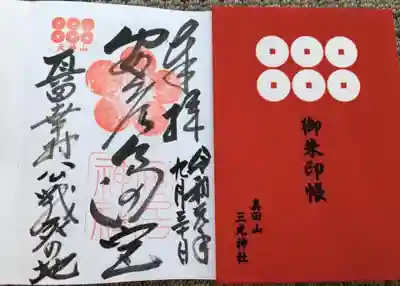 奉拝
令和元年
九月三十日
安居天満宮
真田幸村公戦死の地
御朱印帳
真田山
三光神社